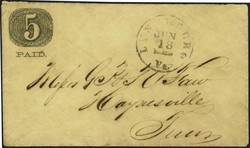 5
PAID.
LYNCHBURG
JUN
18
Va.
Messrs G & A K Law
Haynesville
Tenn